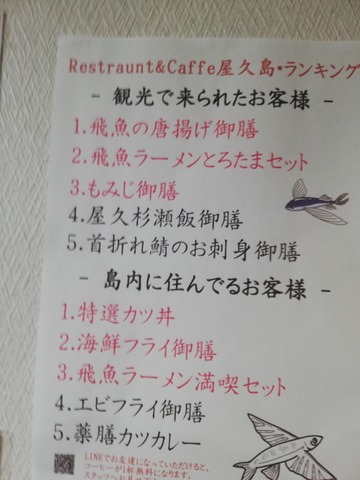 Restraunt&Caffe屋久島・ランキング
- 観光で来られたお客様 -
1.飛魚の唐揚げ御膳
2.飛魚ラーメンとろたまセット
3.もみじ御膳
4.屋久杉瀬飯御膳
5.首折れ鯖のお刺身御膳
- 島内に住んでるお客様 -
1.特選カツ丼
2.海鮮フライ御膳
3.飛魚ラーメン満喫セット
4.エビフライ御膳
5.薬膳カツカレー
LINEでお友達になっていただけると、
コーヒーが1杯無料になります。